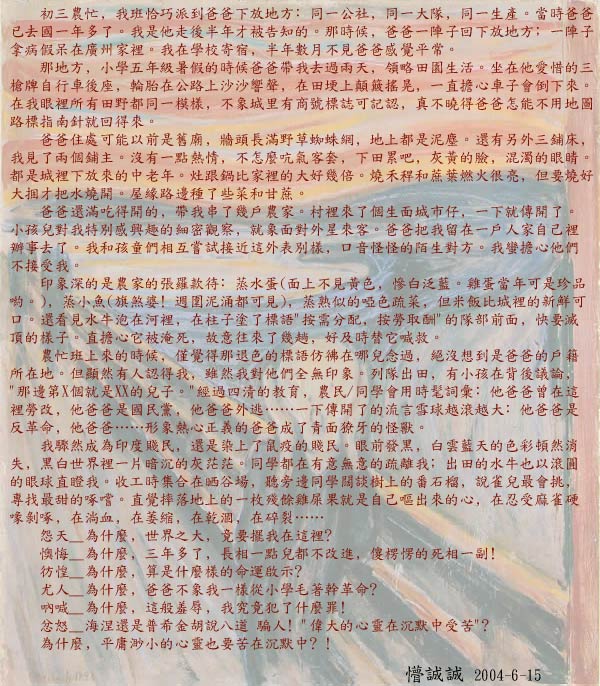 初三農忙，我班恰巧派到爸爸下放地方：同一公社，同一大隊，同一生產。當時爸爸
已去國一年多了。我是他走後半年才被告知的。那時候，爸爸一陣子回下放地方；一陣子
拿病假呆在廣州家裡。我在學校寄宿，半年數月不見爸爸感覺平常。
那地方，小學五年級暑假的時候爸爸帶我去過兩天，領略田園生活。坐在他愛惜的三
槍牌自行車後座，輪胎在公路上沙沙響聲，在田埂上顛簸搖晃，一直擔心車子會倒下來。
在我眼裡所有田野都同一模樣，不象城里有商號標誌可記認，真不曉得爸爸怎能不用地圖
路標指南針就回得來。
爸爸住處可能以前是舊廟，牆頭長滿野草蜘蛛網，地上都是泥塵。還有另外三鋪床，
我見了兩個鋪主。沒有一點熱情，不怎麼吭氣客套，下田累吧，灰黃的臉，混濁的眼睛。
都是城裡下放來的中老年。灶跟鍋比家裡的大好幾倍。燒禾稈和蔗葉燃火很亮，但要燒好
大捆才把水燒開。屋緣路邊種了些菜和甘蔗。
爸爸還滿吃得開的，帶我串了幾戶農家。村裡來了個生面城市仔，一下就傳開了。
小孩兒對我特別感興趣的細密觀察，就象面對外星來客。爸爸把我留在一戶人家自己裡
辦事去了。我和孩童們相互嘗試接近這外表別樣，口音怪怪的陌生對方。我蠻擔心他們
不接受我。
印象深的是農家的張羅款待：蒸水蛋(面上不見黃色，慘白泛藍。雞蛋當年可是珍品
喲。)，蒸小魚(旗煞婆！週圍泥涌都可見)，蒸熟似的啞色疏菜，但米飯比城裡的新鮮可
口。還看見水牛泡在河裡，在柱子塗了標語"按需分配，按勞取酬"的隊部前面，快要滅
頂的樣子。直擔心它被淹死，故意往來了幾趟，好及時替它喊救。
農忙班上來的時候，僅覺得那退色的標語仿彿在哪兒念過，絕沒想到是爸爸的戶籍
所在地。但顯然有人認得我，雖然我對他們全無印象。列隊出田，有小孩在背後議論，
"那邊第X個就是XX的兒子。"經過四清的教育，農民/同學會用時髦詞彙：他爸爸曾在這
裡勞改，他爸爸是國民黨，他爸爸外逃……一下傳開了的流言雪球越滾越大：他爸爸是
反革命，他爸爸……形象熱心正義的爸爸成了青面獠牙的怪獸。
我驟然成為印度賤民，還是染上了鼠疫的賤民。眼前發黑，白雲藍天的色彩頓然消
失，黑白世界裡一片暗沉的灰茫茫。同學都在有意無意的疏離我；出田的水牛也以滾圓
的眼球直瞪我。收工時集合在晒谷場，聽旁邊同學閱談樹上的番石榴，說雀兒最會挑，
專找最甜的啄嚐。直覺摔落地上的一枚殘餘雞屎果就是自己嘔出來的心，在忍受麻雀硬
喙剝啄，在淌血，在萎縮，在乾涸，在碎裂……
怨天__為什麼，世界之大，竟要擺我在這裡？
懊悔__為什麼，三年多了，長相一點兒都不改進，傻楞愣的死相一副！
彷徨__為什麼，算是什麼樣的命運啟示？
尤人__為什麼，爸爸不象我一樣從小學毛著幹革命？
吶喊__為什麼，這般羞辱，我究竟犯了什麼罪！
忿怒__海涅還是普希金胡說八道 騙人！"偉大的心靈在沉默中受苦"？
為什麼，平庸渺小的心靈也要苦在沉默中？！
懵誠誠 2004-6-15